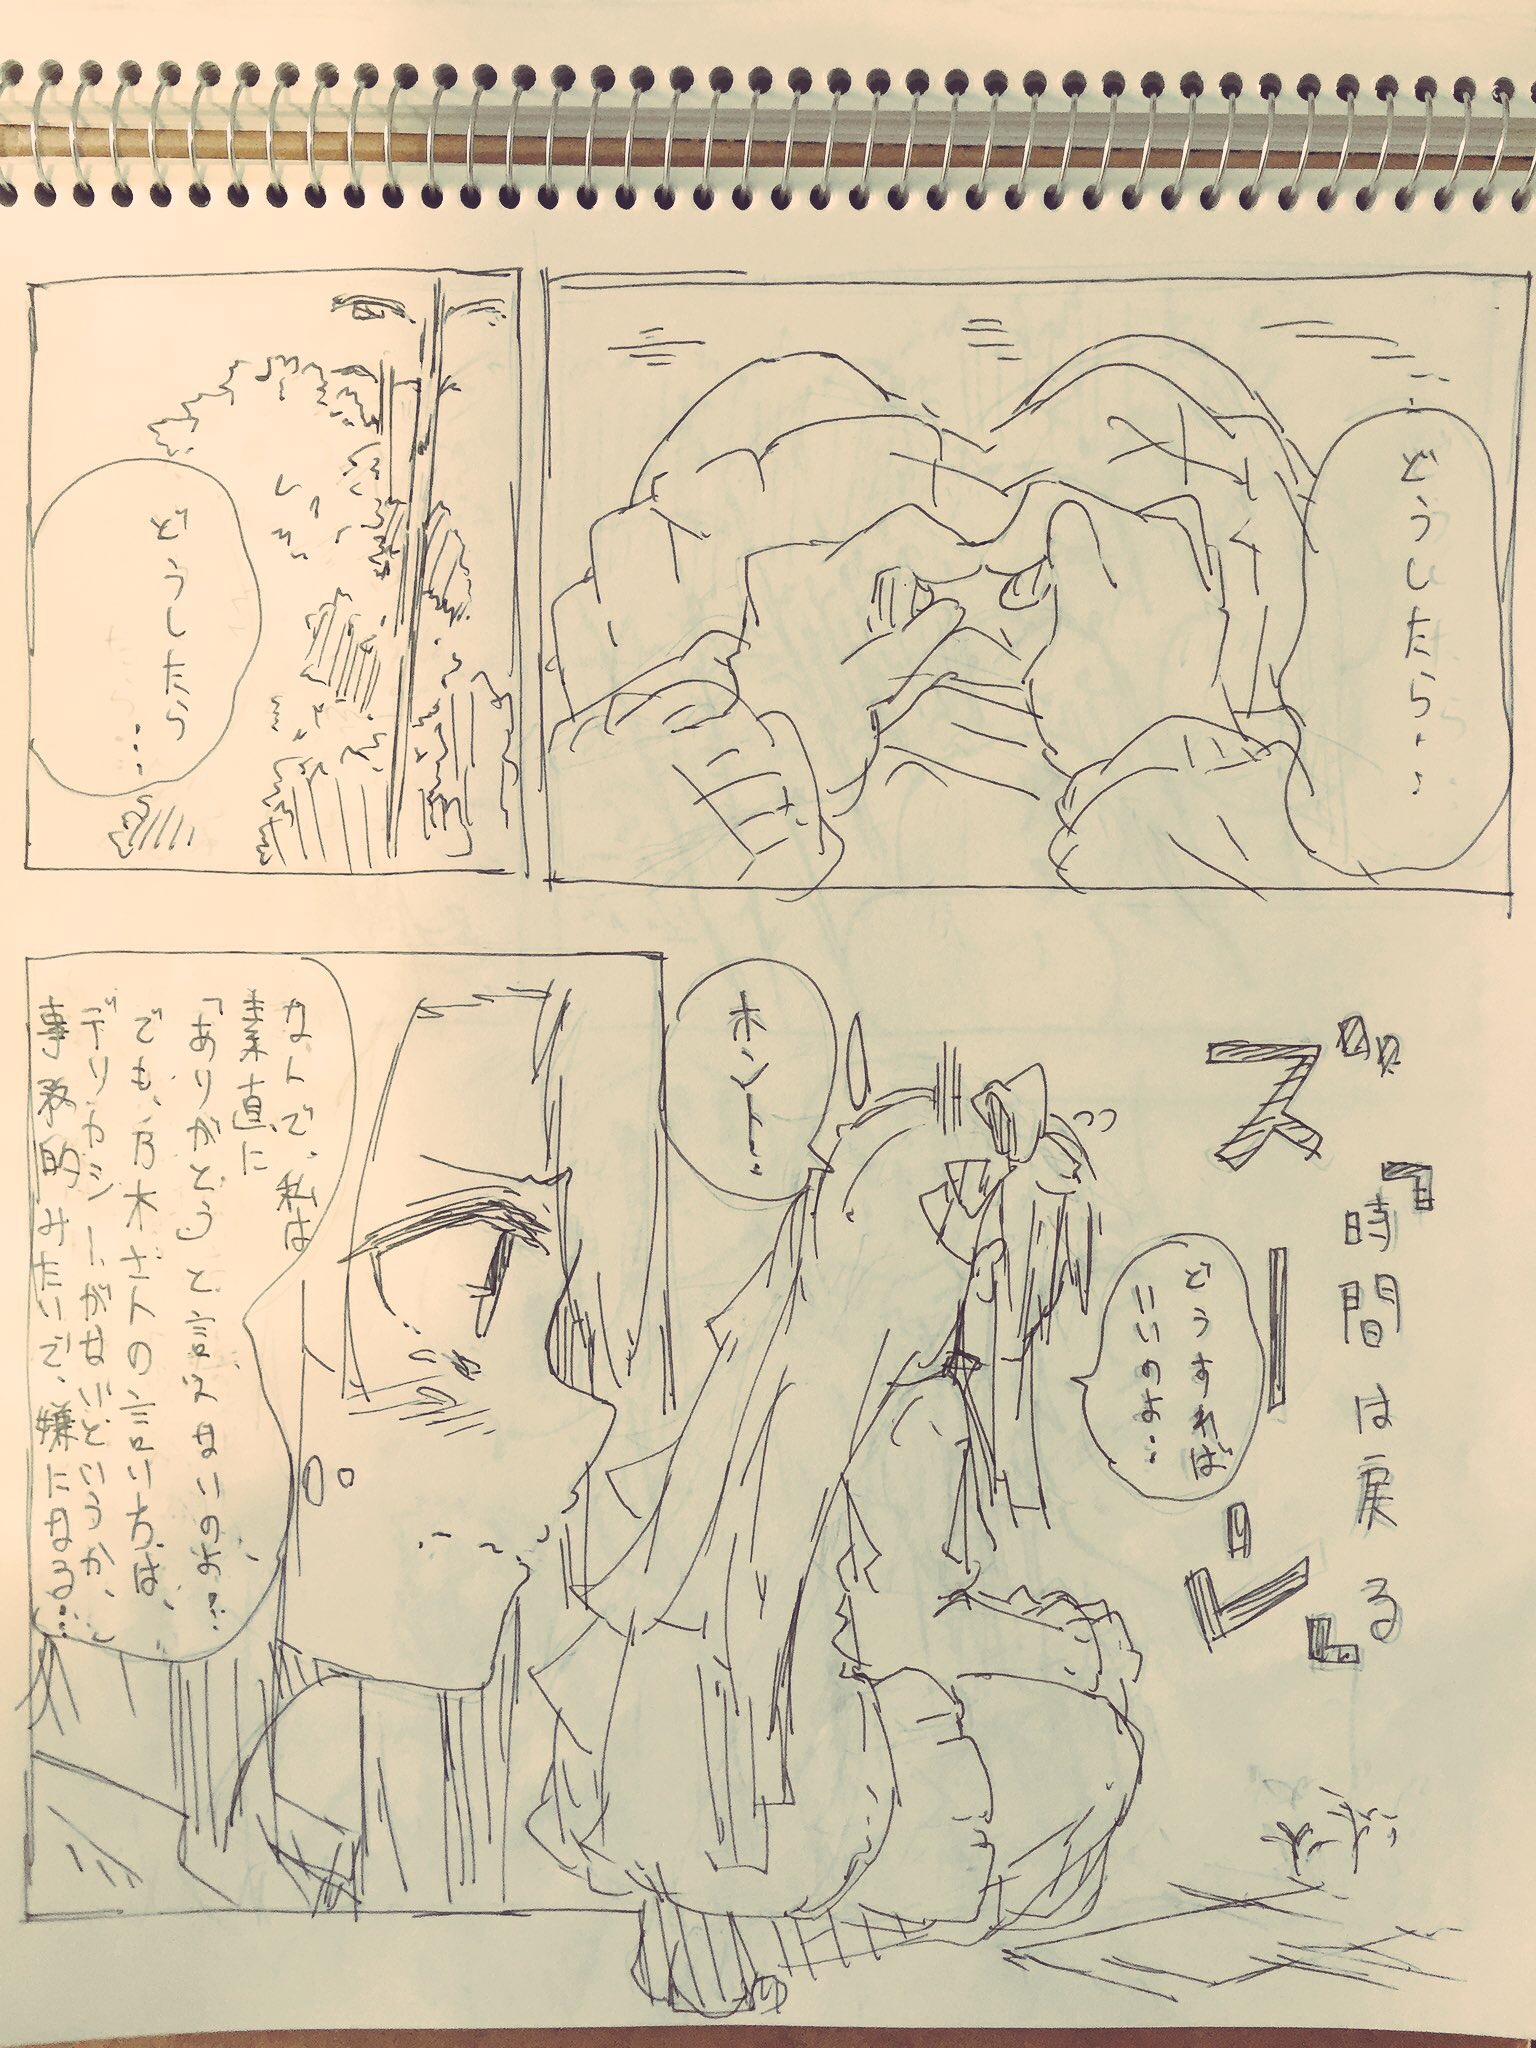 どうしたら…
どうしたら
…
『時間は戻る』
ズーン
どうすれば
いいのよ…
ホント…
なんで、私は
素直に
「ありがとう」と言えないのよ…
でも、方木さんの言い方は、
デリカシーがないというか、
事務的みたいで、嫌になる…